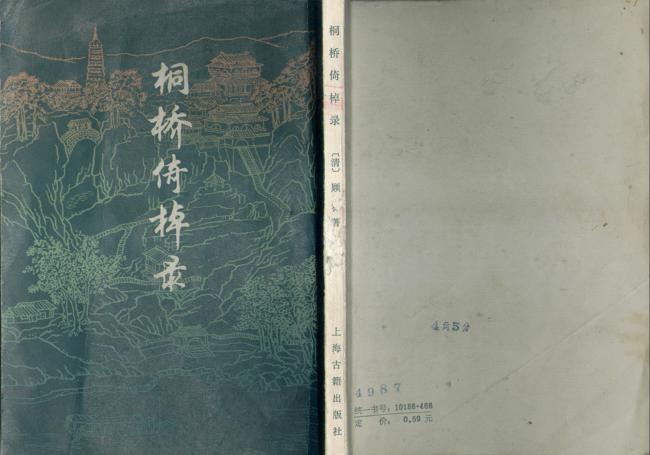 桐桥倚棹录
桐桥倚棹录
〔清〕顾
著
上海古籍出版社
4角5分
4987
统一书号：10186·466
定 价：0.59 元